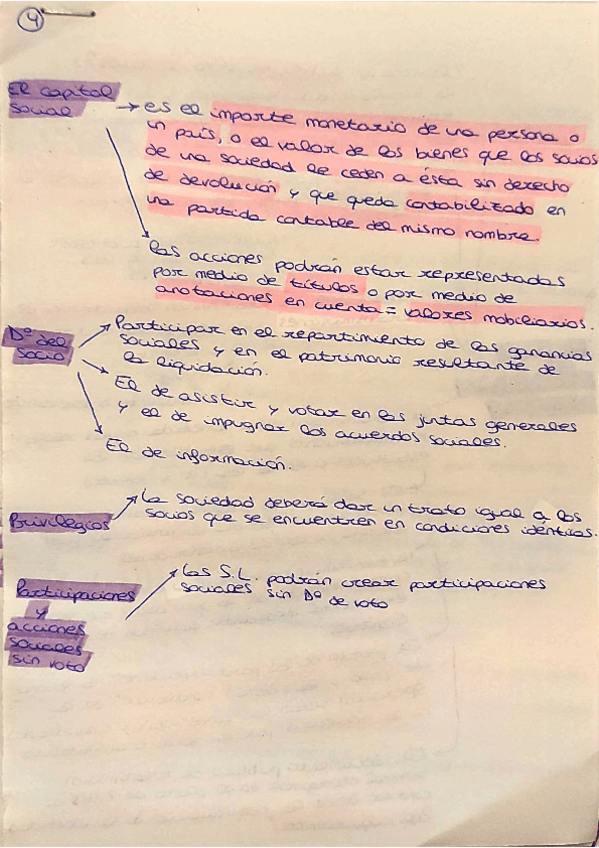 4
El capital
Social
→ es el importe monetario de una persona o
un país, o el valor de los bienes que los socios
de una sociedad le ceden a ésta sin derecho
de devolución y que queda contabilizado en
una partida contable del mismo nombre.
las acciones podrán estar representadas
por medio de títulos o por medio de
anotaciones en cuenta = valores mobiliarios.
Dº del
Socio
Participar en el repartimiento de las ganancias
sociales y en el patrimonio resultante de
la liquidación.
El de asistir y votar en las juntas generales
y el de impugnar los acuerdos sociales.
El de información.
Privilegios
La sociedad deberá dar un trato igual a los
socios que se encuentren en condiciones idénticas.
Participaciones
y
acciones
sociales
sin voto
Las S.L. podrán crear participaciones
sociales sin Dº de voto